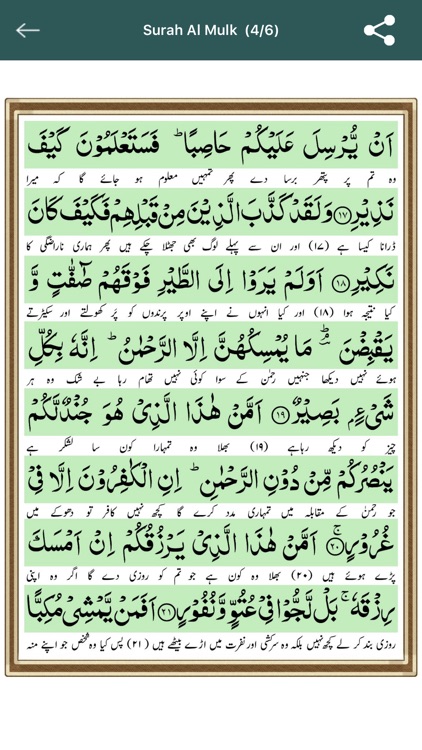 Surah Al Mulk (4/6)
اَنۡ يُّرۡسِلَ عَلَيۡكُمۡ حَاصِبًا ؕ فَسَتَعۡلَمُوۡنَ كَيۡفَ
وہ تم پر پتھر برسا دے پھر تمہیں معلوم ہو جائے گا کہ میرا
نَذِيۡرِ ﴿۱۷﴾ وَلَقَدۡ كَذَّبَ الَّذِيۡنَ مِنۡ قَبۡلِهِمۡ فَكَيۡفَ كَانَ
ڈرانا کیسا ہے (۱۷) اور ان سے پہلے لوگ بھی جھٹلا چکے ہیں پھر ہماری ناراضگی کا
نَكِيۡرِ ﴿۱۸﴾ اَوَلَمۡ يَرَوۡا اِلَى الطَّيۡرِ فَوۡقَهُمۡ صٰٓفّٰتٍ وَّ
کیا نتیجہ ہوا (۱۸) اور کیا انہوں نے اپنے اوپر پرندوں کو پر کھولتے اور سکیڑتے
يَقۡبِضۡنَ ؔۘ ؕ مَا يُمۡسِكُهُنَّ اِلَّا الرَّحۡمٰنُ ؕ اِنَّهٗ بِكُلِّ
ہوئے نہیں دیکھا جنہیں رحمٰن کے سوا کوئی نہیں تھام رہا بے شک وہ ہر
شَىۡءٍۢ بَصِيۡرٌ ﴿۱۹﴾ اَمَّنۡ هٰذَا الَّذِىۡ هُوَ جُنۡدٌ لَّكُمۡ
چیز کو دیکھ رہاہے (۱۹) بھلا وہ تمہارا کون سا لشکر ہے
يَنۡصُرُكُمۡ مِّنۡ دُوۡنِ الرَّحۡمٰنِ ؕ اِنِ الۡكٰفِرُوۡنَ اِلَّا فِىۡ
جو رحمٰن کے مقابلہ میں تمہاری مدد کرے گا کچھ نہیں کافر تو دھوکے میں
غُرُوۡرٍ ۚ ﴿۲۰﴾ اَمَّنۡ هٰذَا الَّذِىۡ يَرۡزُقُكُمۡ اِنۡ اَمۡسَكَ
پڑے ہوئے ہیں (۲۰) بھلا وہ کون ہے جو تم کو روزی دے گا اگر وہ اپنی
رِزۡقَهٗ ۚ بَلۡ لَّجُّوۡا فِىۡ عُتُوٍّ وَّنُفُوۡرٍ ﴿۲۱﴾ اَفَمَنۡ يَّمۡشِىۡ مُكِبًّا
روزی بند کر لے کچھ نہیں بلکہ وہ سرکشی اور نفرت میں اڑے بیٹھے ہیں (۲۱) پس کیا وہ شخص جو اپنے منہ